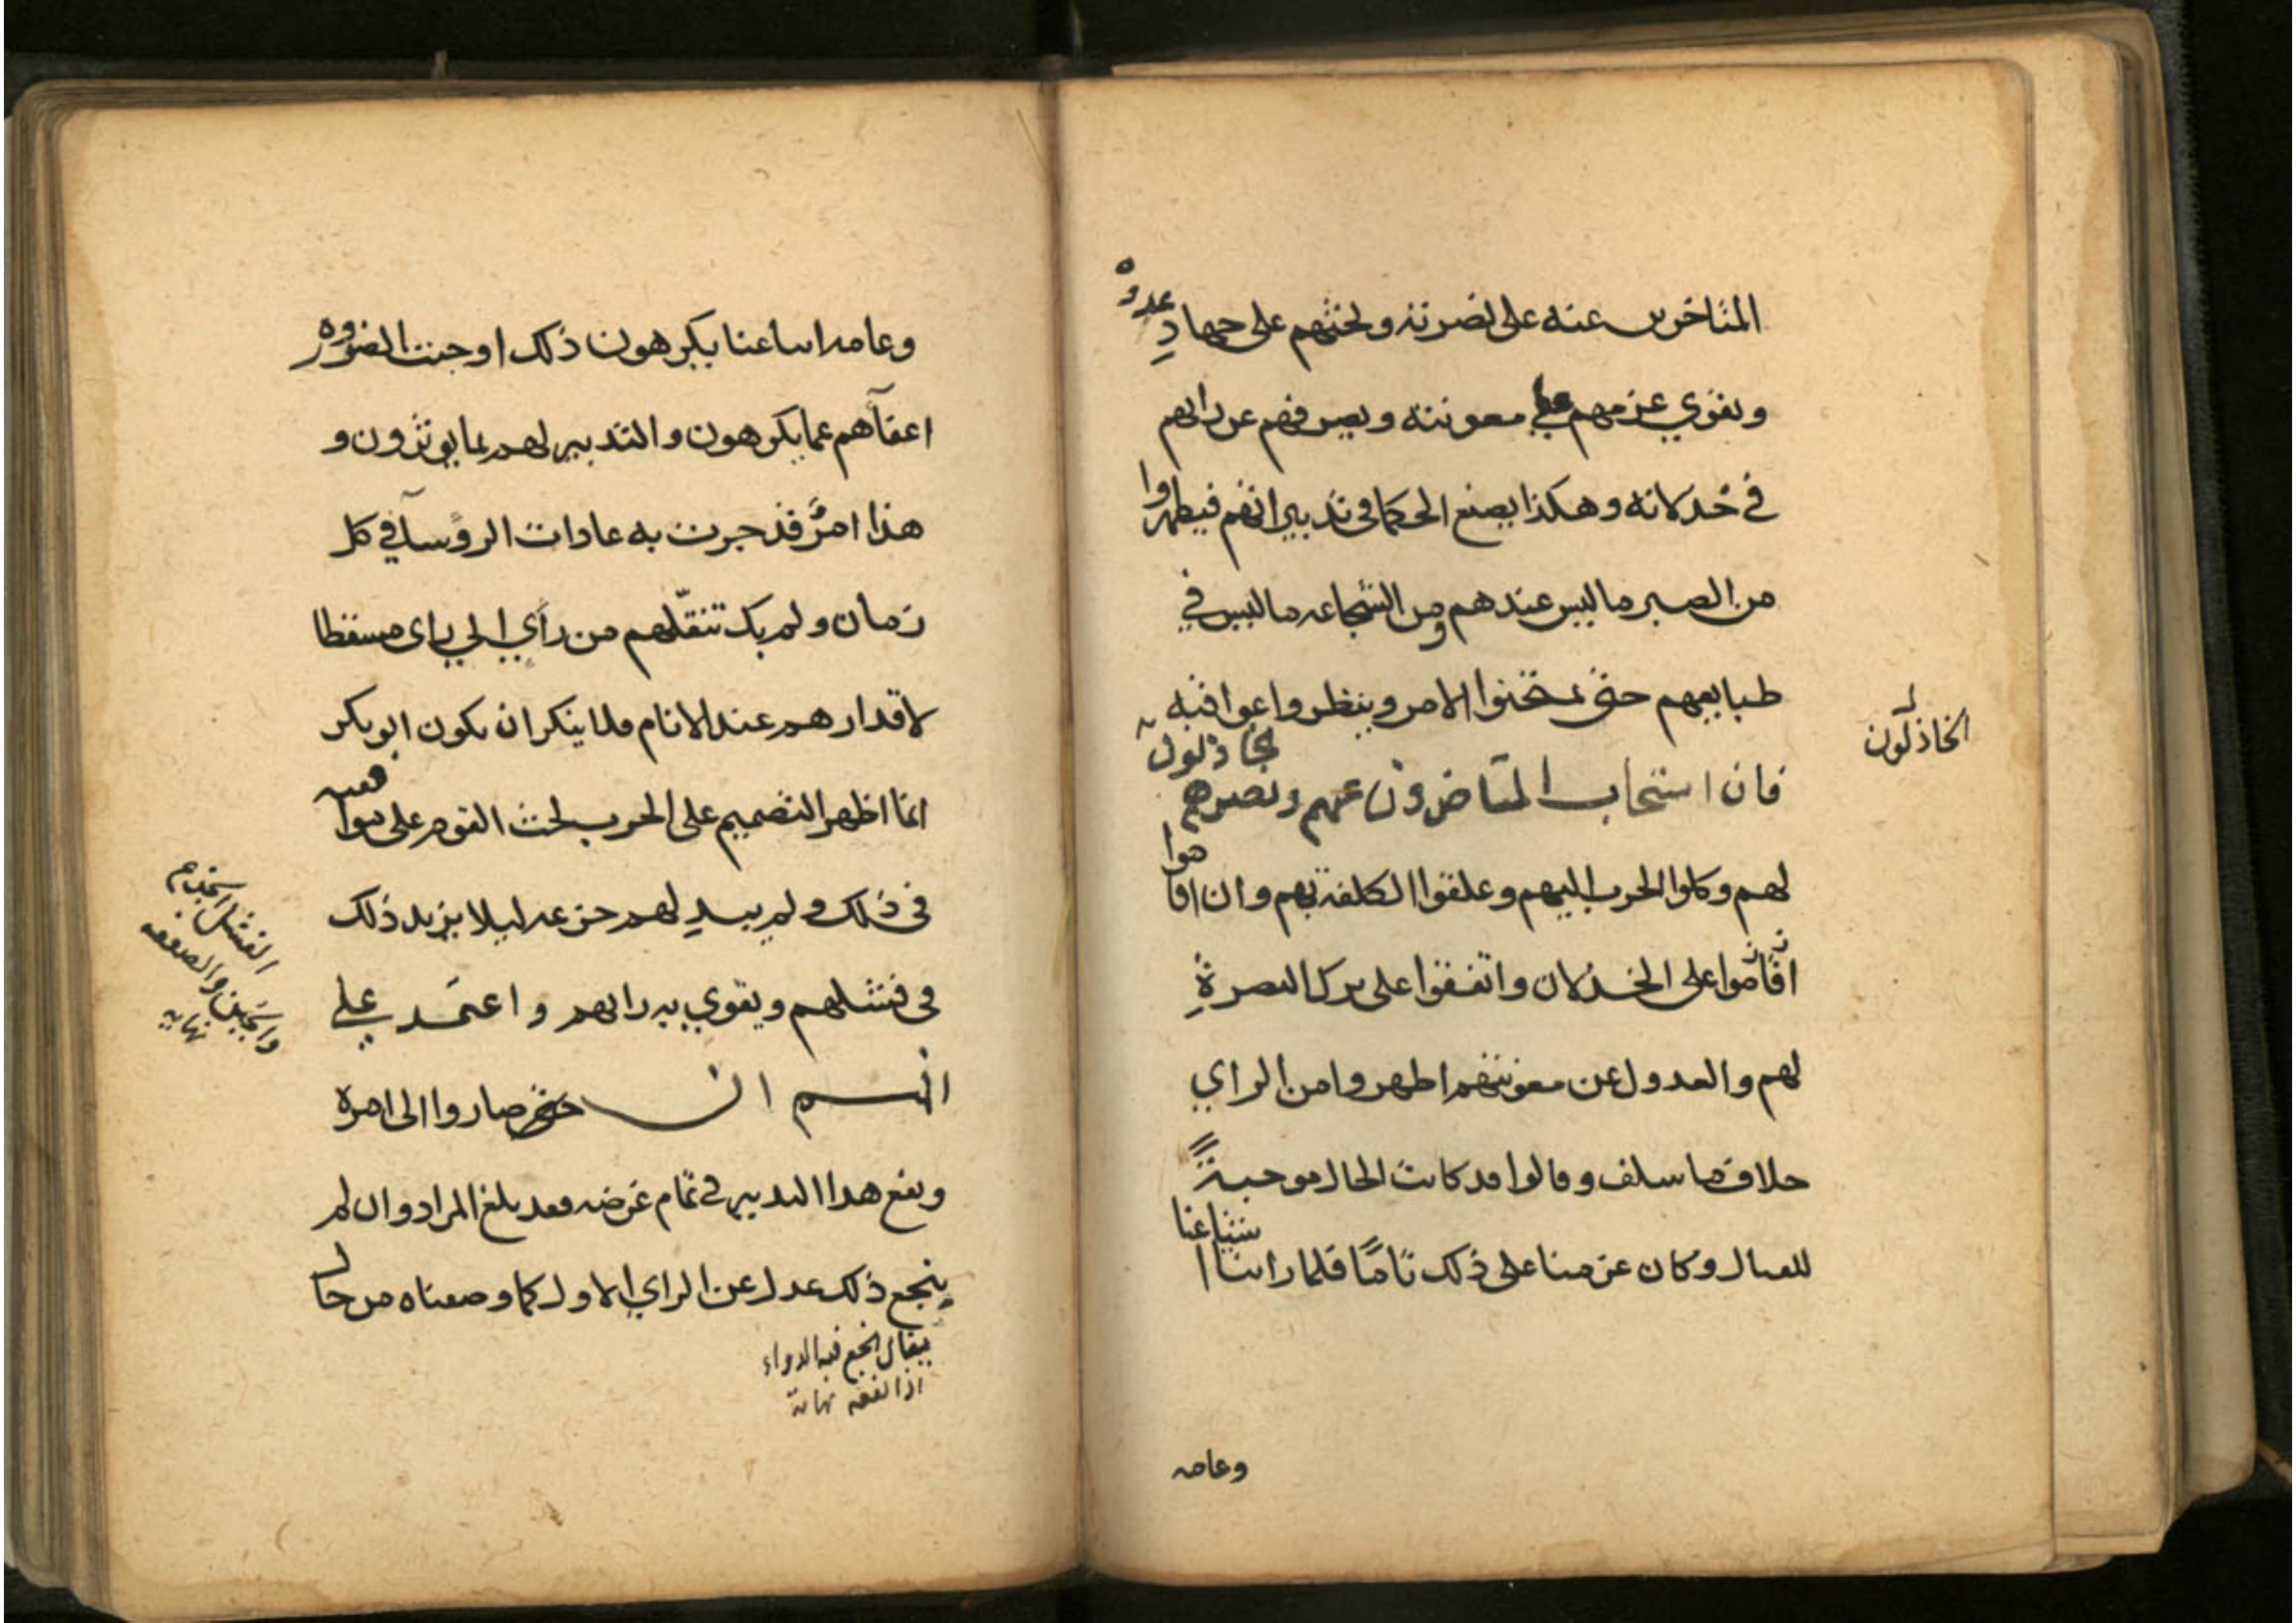 المتاخرين عنه على نصرته ويحثهم على جهاد عدوه
ويقوي عزمهم على معونته ويصرفهم عن رايهم
في خذلانه وهكذا يصنع الحكما في تدبيراتهم فيظهروا
من الصبر ما ليس عندهم ومن الشجاعه ما ليس في
طبايعهم حتى يمتحنوا الامر وينظروا عواقبه
فان استجاب المتاخرون عنهم ونصرهم الخاذلون
الخاذلون
لهم وكلوا الحرب اليهم وعلقوا الكلفة بهم وان اقاموا
اقاموا على الخذلان واتفقوا على ترك النصرةِ
لهم والعدول عن معونتهم اظهروا من الراي
خلاف ما سلف وقالوا قد كانت الحال موجبةً
للقتال وكان عزمنا على ذلك تامًا فلما راينا اشياعنا
وعامه
وعامه اتباعنا يكرهون ذلك اوجبت الضروره
اعفآهم عما يكرهون والتدبير لهم بما يوثرون و
هذا امرٌ قد جرت به عادات الروسآ في كل
زمان ولم يك تنقّلهم من رأي الى راى مسقطا
لاقدارهم عند الانام فلا ينكر ان يكون ابو بكر
انما اظهر التصميم على الحرب لحث القوم على
في ذلك ولم يبدِ لهم جزعه ليلا يزيد ذلك
في فشلهم ويقوي به رايهم واعتمد على
حتى صاروا الى امره
ونفع هذا التدبير في تمام غرضه فقد بلغ المراد وان لم
ينجع ذلك عدل عن الراي الاول كما وصفناه من حال
الفشل
والجبن والضعف
نهايه
يقال انجع فيه الدواء
اذا نفعه نهاية